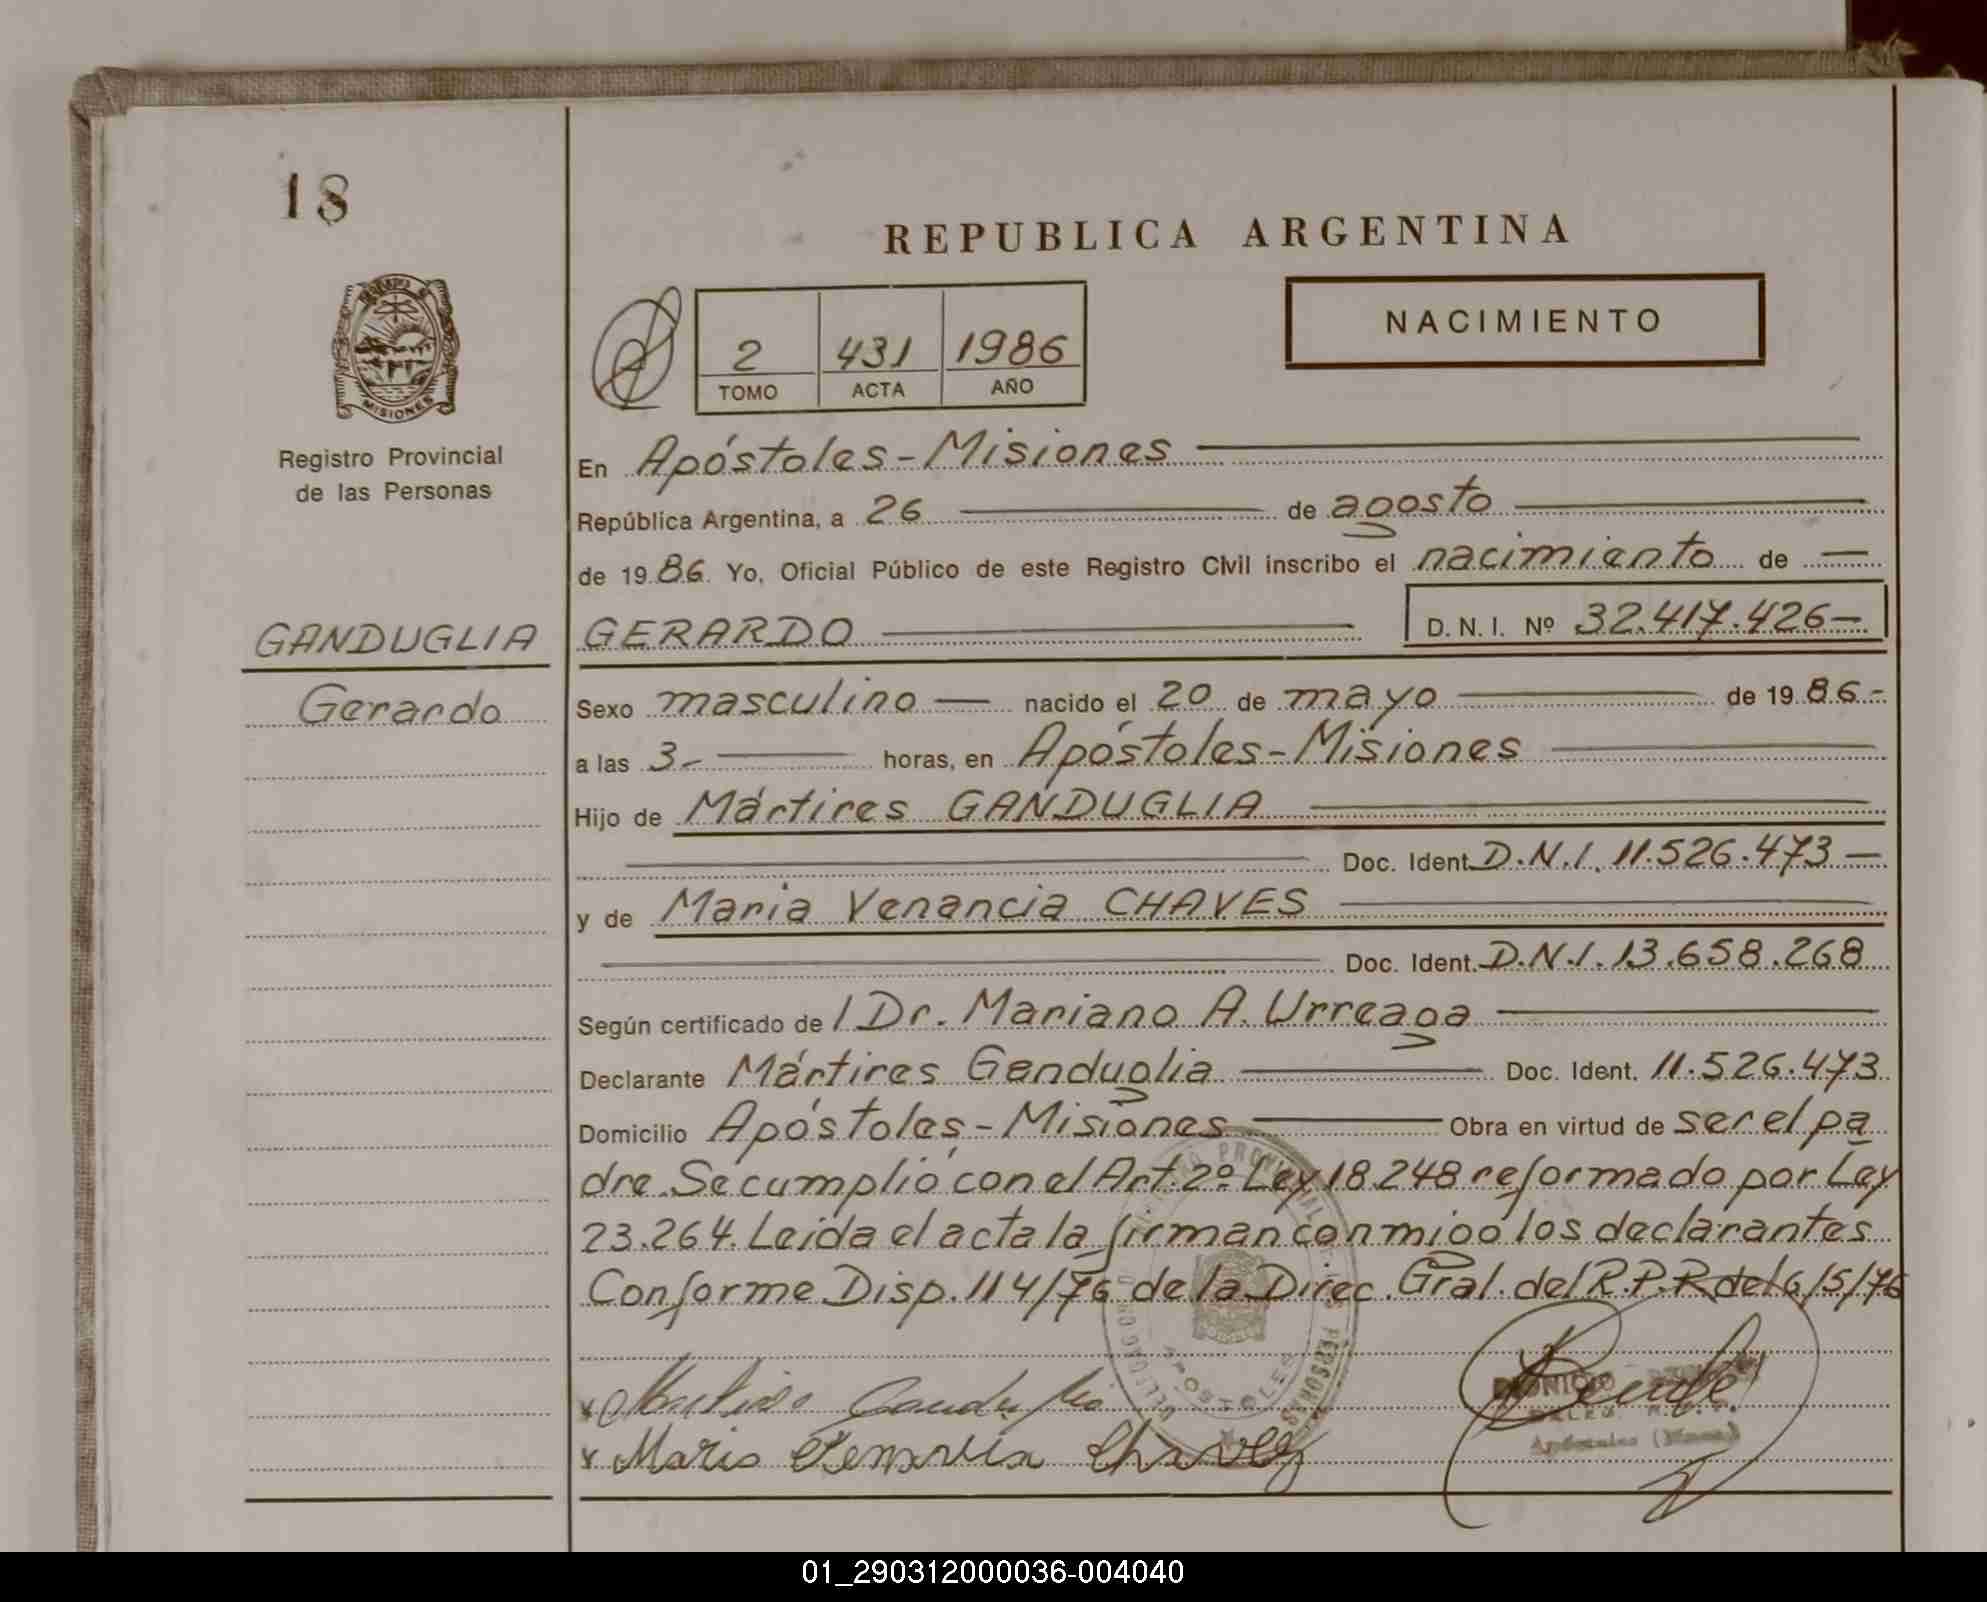 18
REPUBLICA ARGENTINA
NACIMIENTO
2 431 1986
TOMO ACTA AÑO
MISIONES
Registro Provincial
de las Personas
En Apóstoles-Misiones
República Argentina, a 26 de agosto
de 1986. Yo, Oficial Público de este Registro Civil inscribo el nacimiento de —
GANDUGLIA
Gerardo
GERARDO D.N.I. Nº 32.417.426-
Sexo masculino — nacido el 20 de mayo de 1986.-
a las 3.- horas, en Apóstoles-Misiones
Hijo de Mártires GANDUGLIA
Doc. Ident. D.N.I. 11.526.473 —
y de Maria Venancia CHAVES
Doc. Ident. D.N.I. 13.658.268
Según certificado de / Dr. Mariano A. Urreaga
Declarante Mártires Ganduglia Doc. Ident. 11.526.473
Domicilio Apóstoles-Misiones Obra en virtud de ser el pa
dre. Se cumplió con el Art. 2º Ley 18.248 reformado por Ley
23.264. Leida el acta la firman conmigo los declarantes
Conforme Disp. 114/76 de la Direc. Gral. del R.P.P. del 6/5/76
APOSTOLES
x Martires Ganduglia
x Maria Chavez
DIONICIO
Apóstoles (Mnes)
01_290312000036-004040